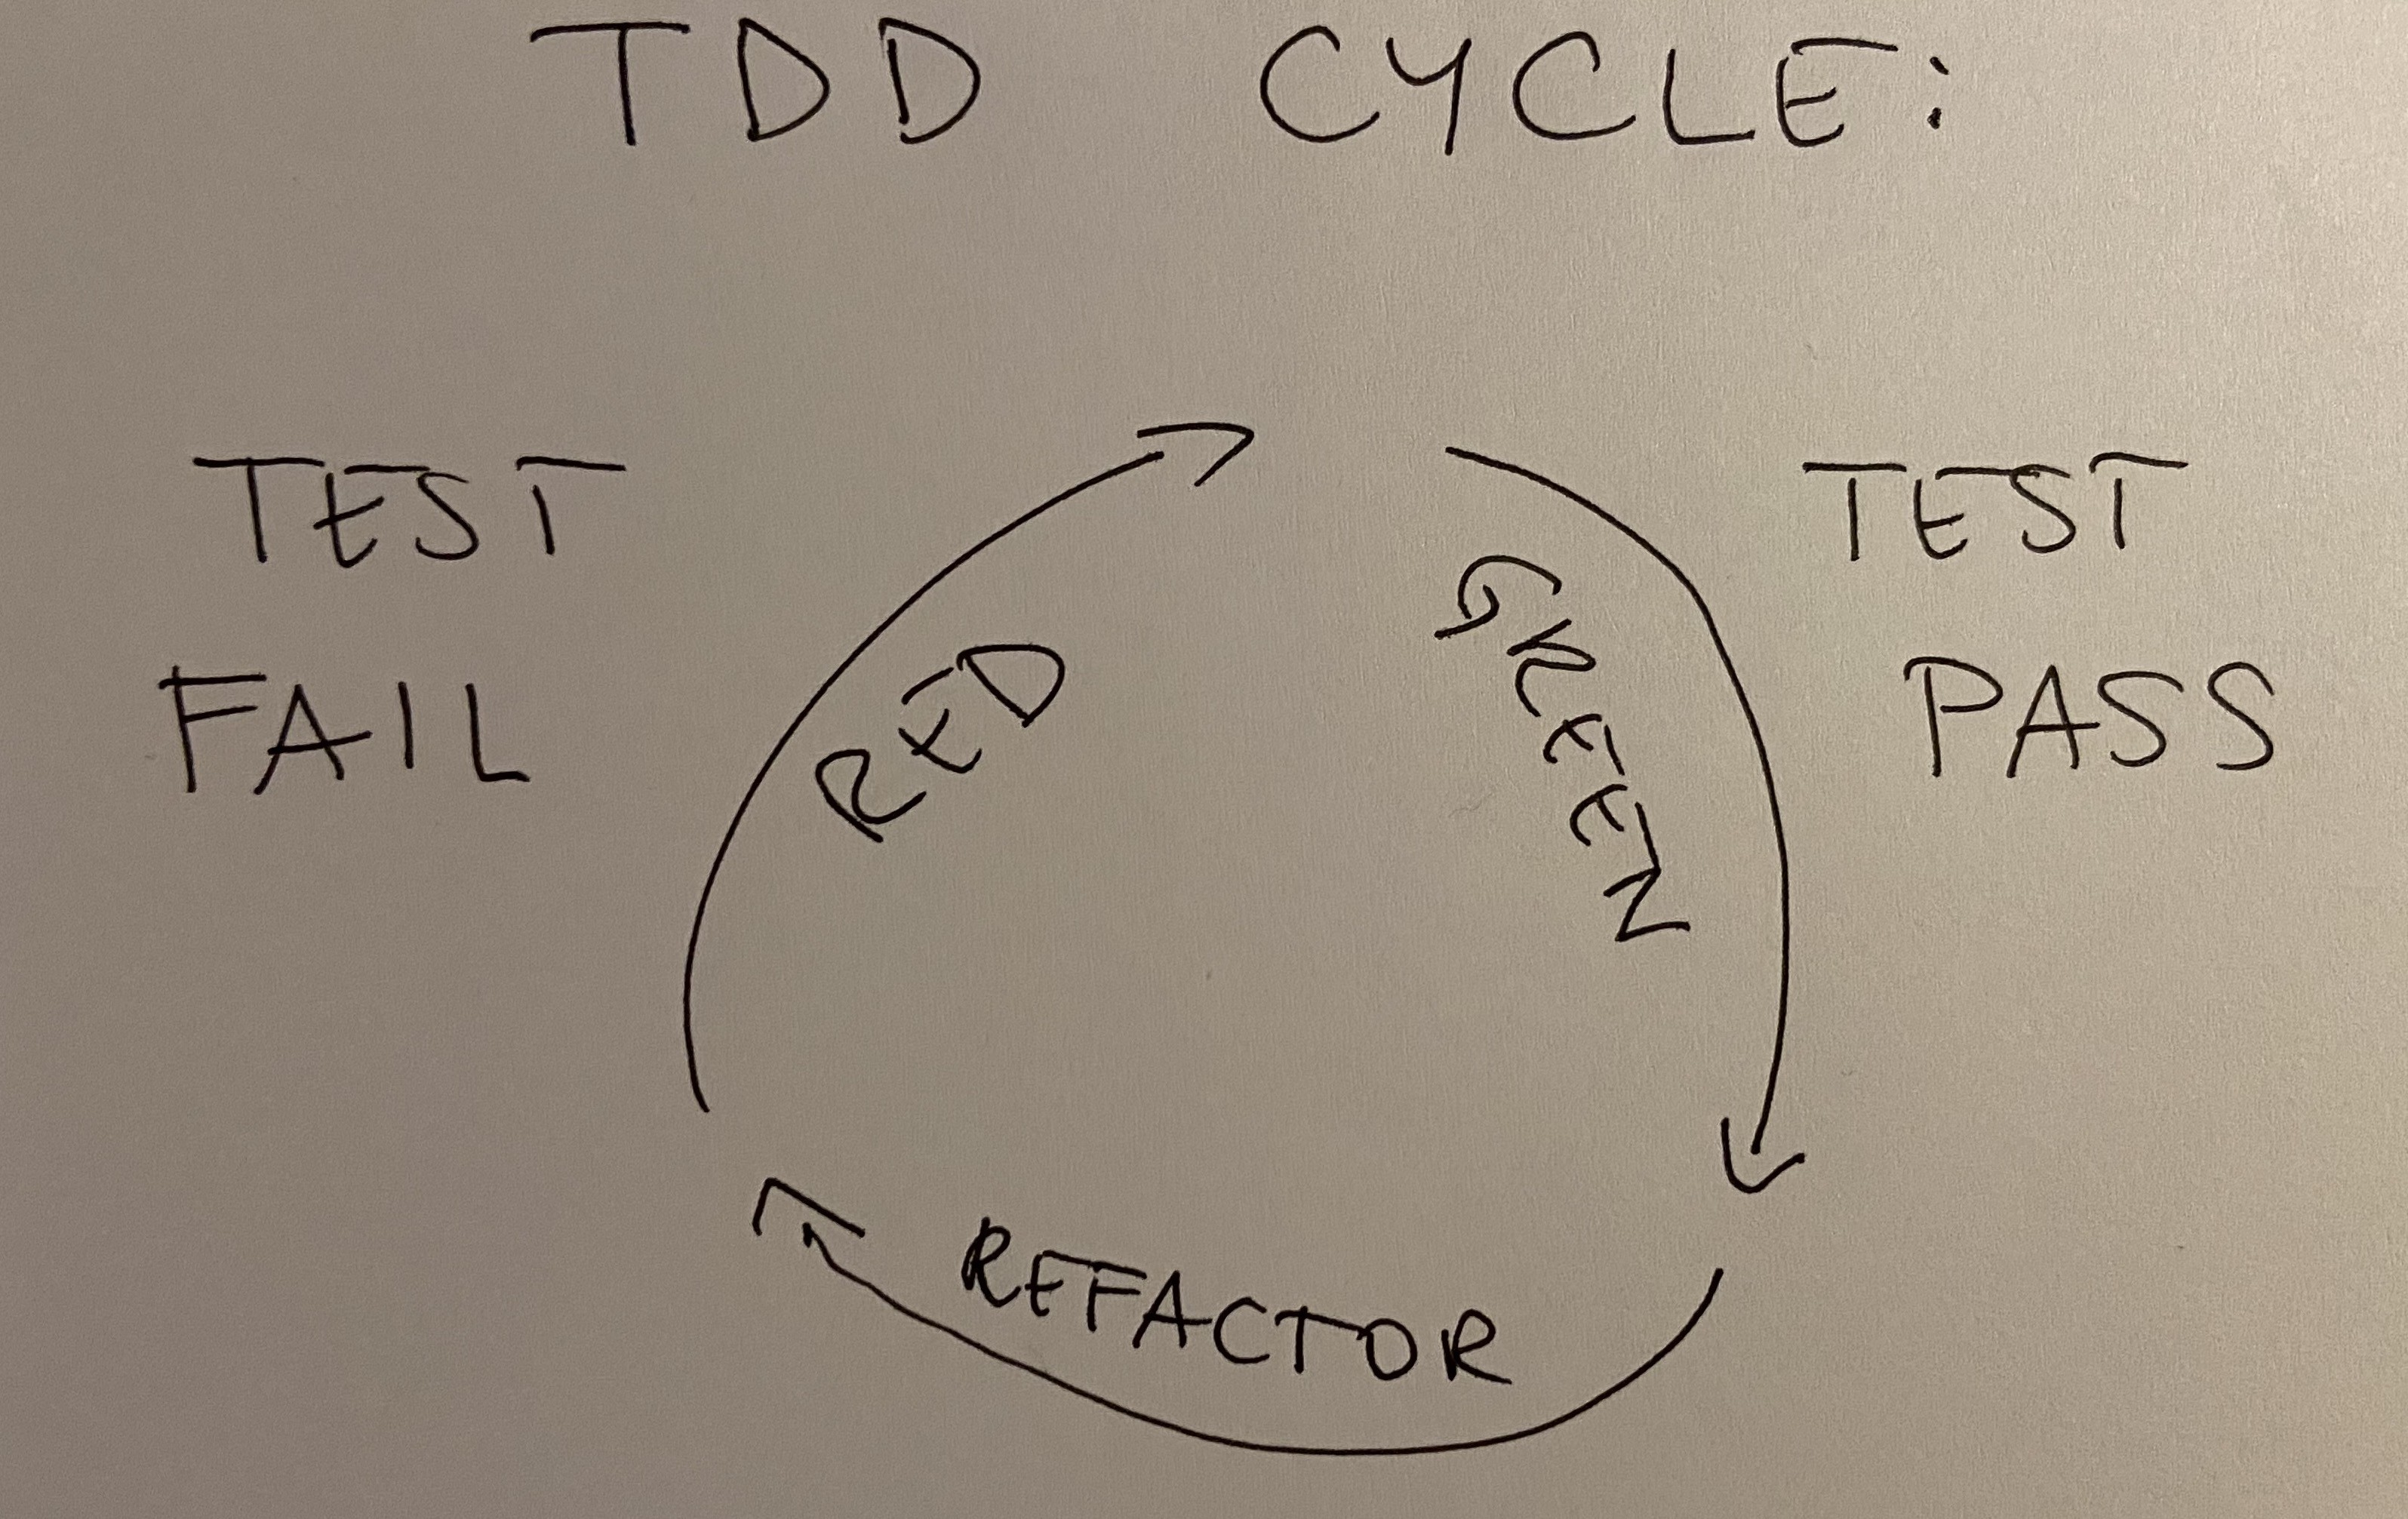 TDD CYCLE:
TEST
FAIL
RED
GREEN
TEST
PASS
REFACTOR